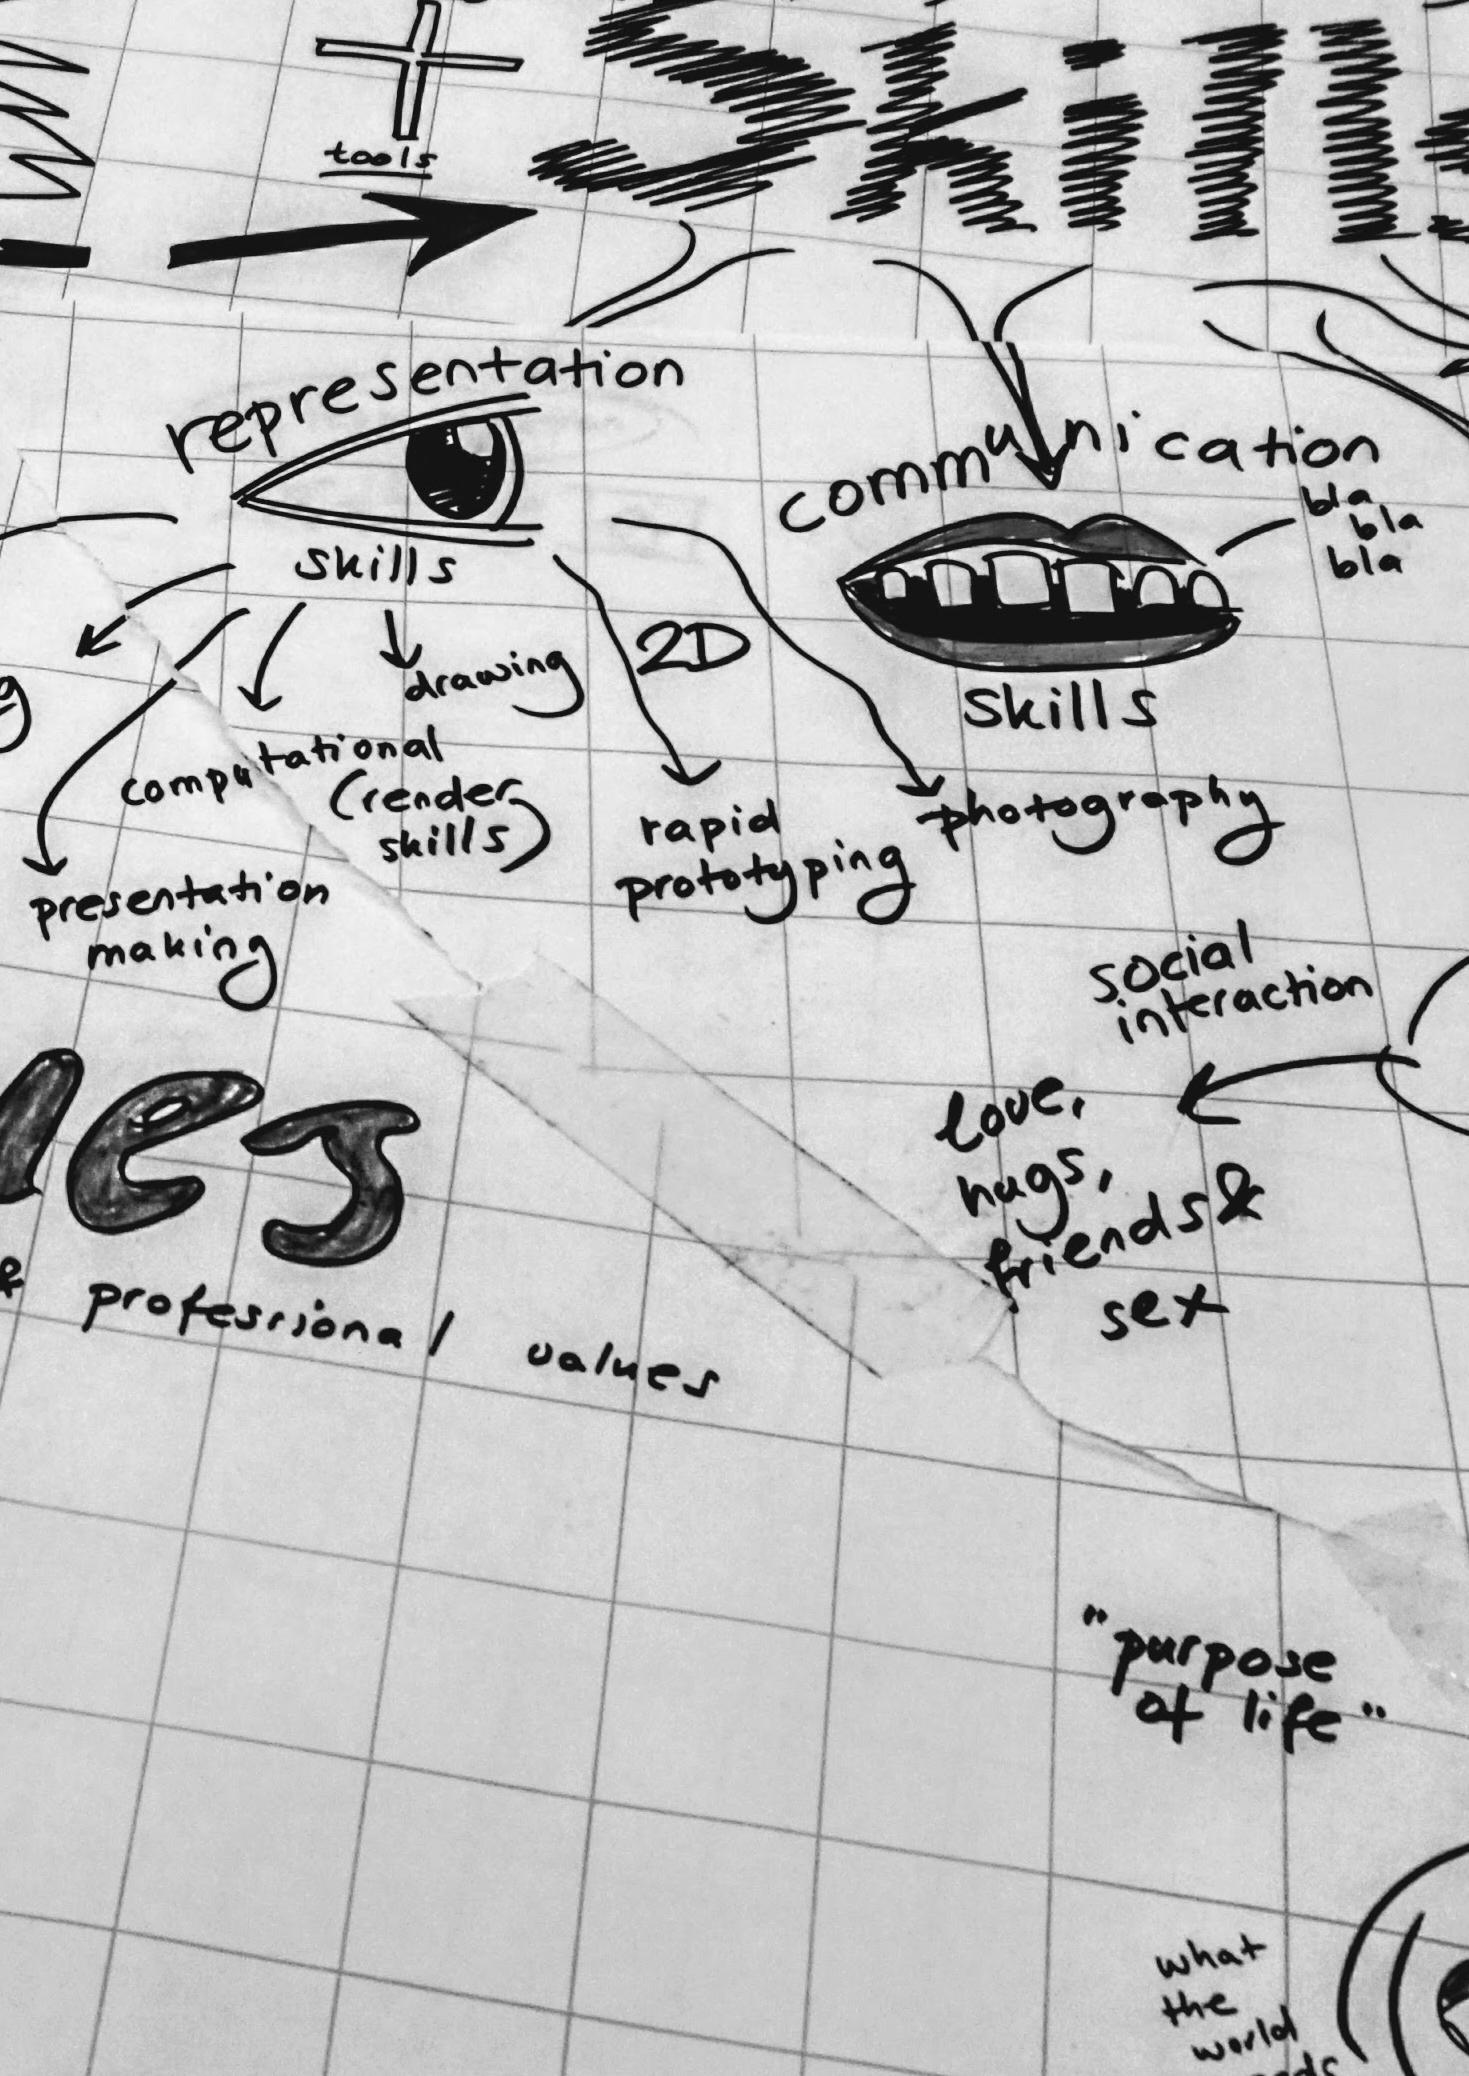 tools
Skills
representation
skills
communication
bla
bla
bla
skills
drawing
2D
computational
(render
skills)
rapid
prototyping
photography
presentation
making
social
interaction
love,
hugs,
friends &
sex
& professional values
"purpose
of life"
what
the
world